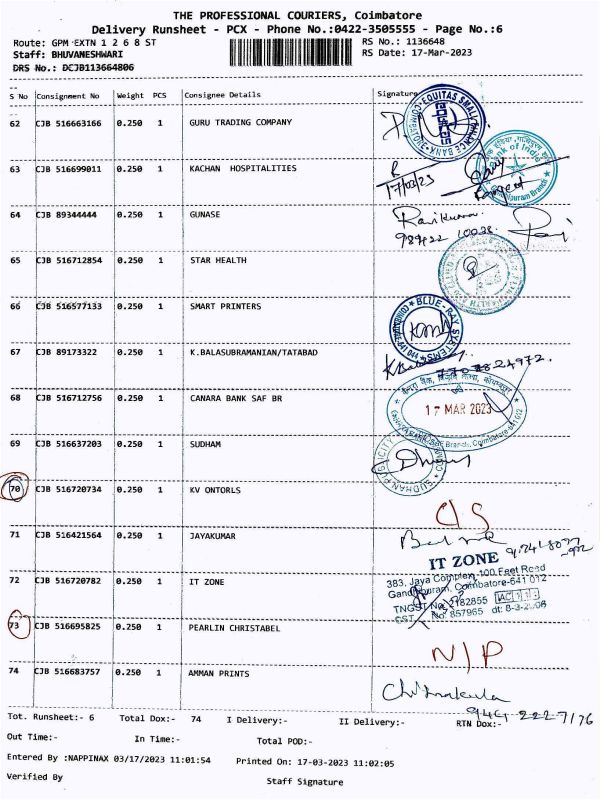 THE PROFESSIONAL COURIERS, Coimbatore
Delivery Runsheet - PCX - Phone No.:0422-3505555 - Page No.:6
Route: GPM EXTN 1 2 6 8 ST RS No.: 1136648
Staff: BHUVANESHWARI RS Date: 17-Mar-2023
DRS No.: DCJB113664806
S No Consignment No Weight PCS Consignee Details Signature
62 CJB 516663166 0.250 1 GURU TRADING COMPANY
EQUITAS SMALL FINANCE BANK
63 CJB 516699011 0.250 1 KACHAN HOSPITALITIES
17/03/23
Bank of India
64 CJB 89344444 0.250 1 GUNASE
Ravikumar
65 CJB 516712854 0.250 1 STAR HEALTH
66 CJB 516577133 0.250 1 SMART PRINTERS
BLUE-RAY SYSTEMS
67 CJB 89173322 0.250 1 K.BALASUBRAMANIAN/TATABAD
68 CJB 516712756 0.250 1 CANARA BANK SAF BR
17 MAR 2023
69 CJB 516637203 0.250 1 SUDHAM
SUDHAN PUBLICITY
70 CJB 516720734 0.250 1 KV ONTORLS
C/S
71 CJB 516421564 0.250 1 JAYAKUMAR
72 CJB 516720782 0.250 1 IT ZONE
IT ZONE
383, Jaya Complex-100 Feet Road
Gandhipuram, Coimbatore-641 012
TNGST No. 2182855
CST No. 857965 dt: 8-3-2006
73 CJB 516695825 0.250 1 PEARLIN CHRISTABEL
N/P
74 CJB 516683757 0.250 1 AMMAN PRINTS
Tot. Runsheet:- 6 Total Dox:- 74 I Delivery:- II Delivery:- RTN Dox:-
Out Time:- In Time:- Total POD:-
Entered By :NAPPINAX 03/17/2023 11:01:54 Printed On: 17-03-2023 11:02:05
Verified By Staff Signature